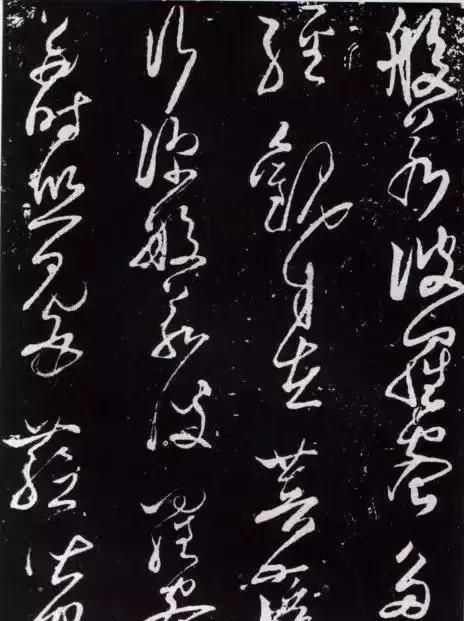 般若波羅蜜多
經觀自在菩薩
行深般若波羅蜜
多時照見五蘊皆